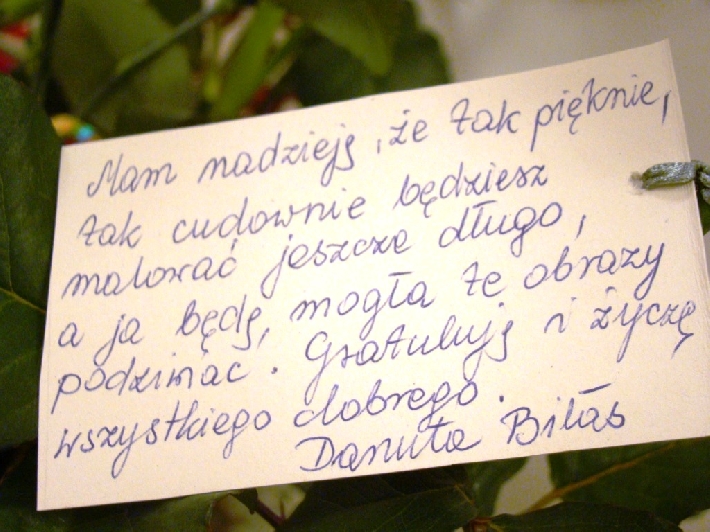 Mam nadzieję, że tak pięknie,
tak cudownie będziesz
malować jeszcze długo,
a ja będę, mogła te obrazy
podziwiać. Gratuluję i życzę
wszystkiego dobrego.
Danuta Biłas